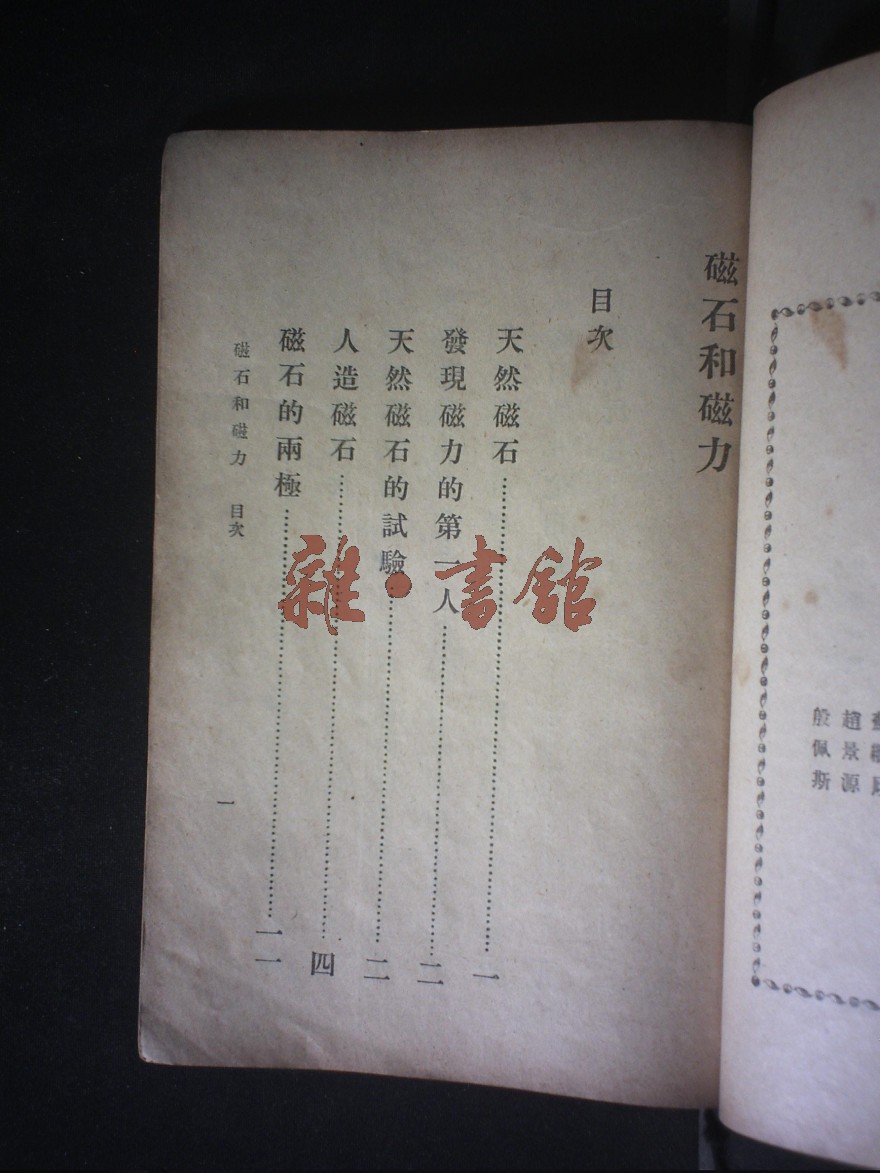 趙景源
殷佩斯
磁石和磁力
目次
天然磁石……………………一
發現磁力的第一人……………………二
天然磁石的試驗……………………二
人造磁石……………………四
磁石的兩極……………………一一
磁石和磁力 目次
一
雜·書館